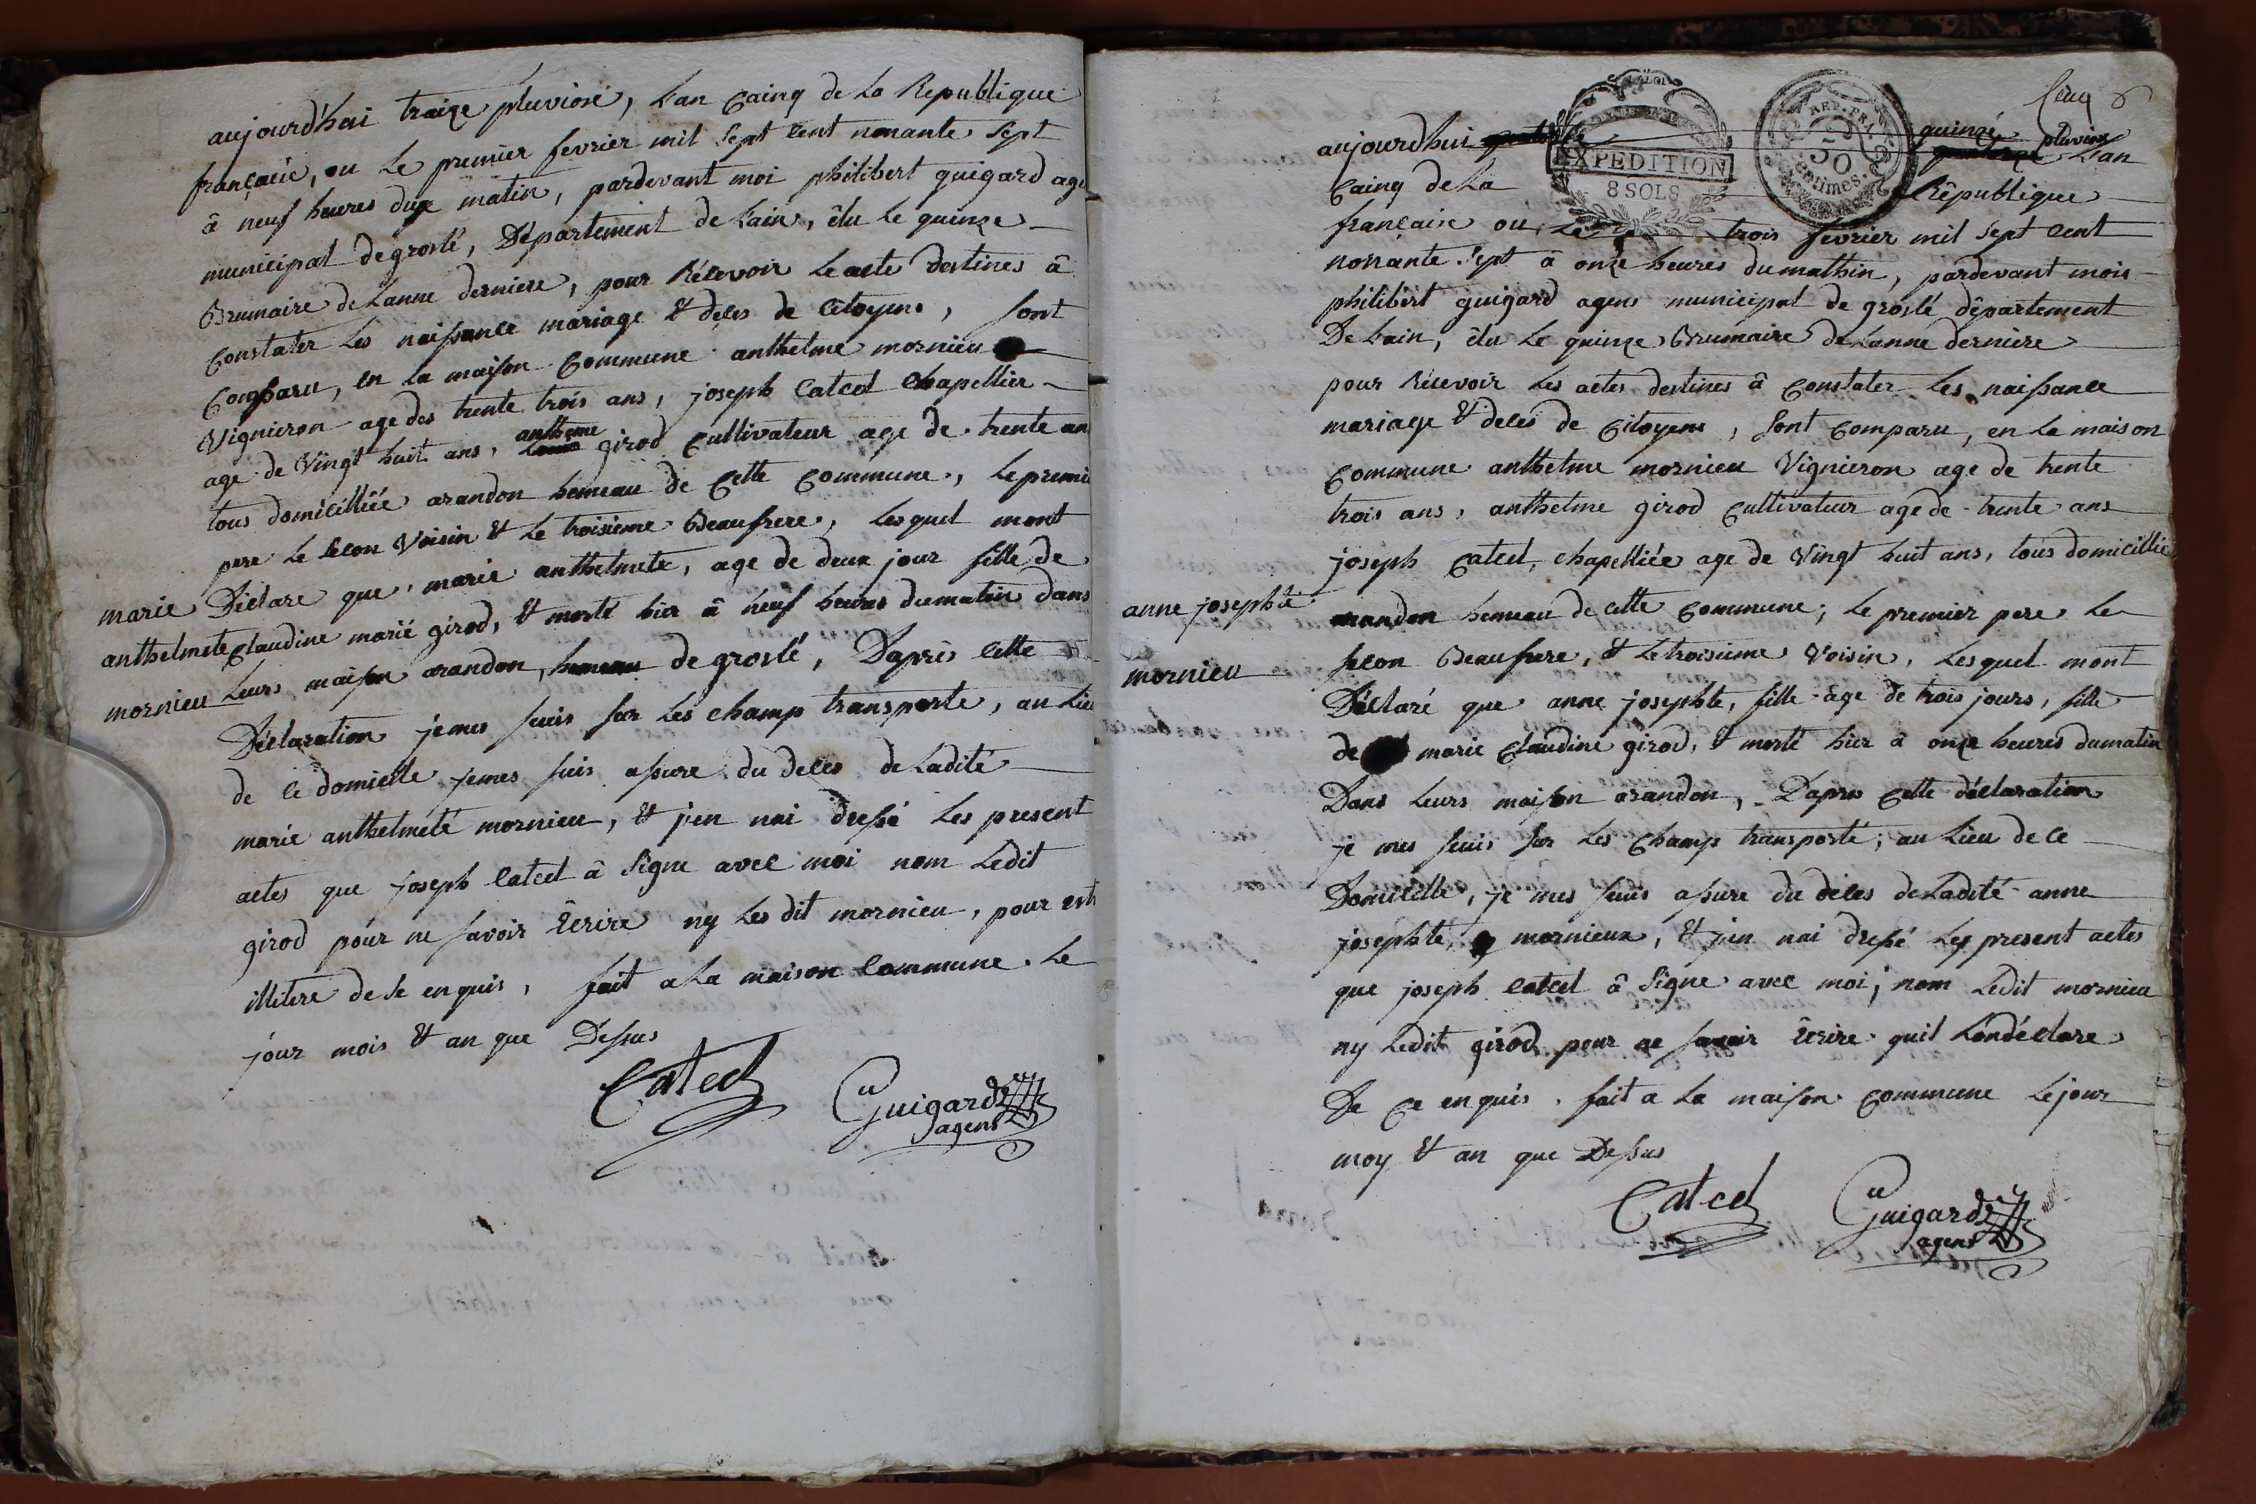 aujourd'hui traize pluviose, L'an Cainq de La Republique
françaiie, ou Le premier fevrier mil Sept Cent nonante Sept
â neuf heures duge matin, pardevant moi philibert guigard age
municipal de groslé, Département de L'ain, êlu Le quinze
Brumaire de L'anne derniere, pour Récevoir Le acte destines â
Constater Les naissance mariage & déces de Citoyens, Sont
Comparu, en La maison Commune anthelme mornieu
Vignieron age des trente trois ans, joseph Catcel Chapellier
age de Vingt huit ans, anthême girod Cultivateur age de trente an
tous domicilliée arandon hemeau de Cette Commune, Le premie
pere Le Secon Voisin & Le troisieme Beaufrere, Lesquel mont
Déclare que marie anthelmete, age de deux jour fille de
Claudine marie girod, & morte hier â neuf heures dumatin dans
Leurs maison arandon, hemeau de groslé, D'après Cette
Déclaration jemes suis sur Les champ transporte, au Lieu
de Ce domicille jemes suis assure du deces de Ladité
marie anthelmété mornieu, & j'en nai dressé Les present
actes que joseph Catcel â Signe avec moi nom Ledit
girod pour ne savoir Ecrire ny Les dit mornieu, pour estr
illitere de Se enquis, fait a La maison Commune. Le
jour mois & an que Dessus
marie
anthelmete
mornieu
Catcel
Guigard
agent
Cinq 6
EXPEDITION
8 SOLS
REP. FRA.
50
centimes.
aujourdhui quinze pluviose L'an
Cainq de La Rêpublique
française ou Le trois fevrier mil Sept Cent
nonante Sept â onze heures dumathin, pardevant mois
philibert guigard agens municipal de groslé département
De L'ain, êlu Le quinze Brumaire de L'anne derniere
pour Récevoir Les actes destines â Constater Les naissance
mariage & deces de Citoyens, Sont Comparu, en La maison
Commune anthelme mornieu Vignieron age de trente
trois ans, anthelme girod Cultivateur age de trente ans
joseph Catcel, chapelliée age de Vingt huit ans, tous domicillie
arandon hemeau de cette Commune, Le premier pere Le
Secon Beaufrere, & Le troisieme Voisin, Lesquel mont
Déclaré que anne josephte, fille age de trois jours, fille
de marie Claudine girod, & morte hier â onze heures dumatin
Dans Leurs maison arandon, D'apres Cette déclaration
je mes suis sur Les Champ transporté, au Lieu de Ce
Domicille, je mes suis assure du déces de Ladité anne
josephte, mornieux, & j'en nai dressé Les present actes
que joseph Catcel â Signe avec moi, nom Ledit mornieu
ny Ledit girod pour ne savoir Ecrire quil L'ondéclare
De Ce enquis. fait a La maison Commune Le jour
moy & an que Dessus
anne josephte
mornieu
Catcel
Guigard
agent